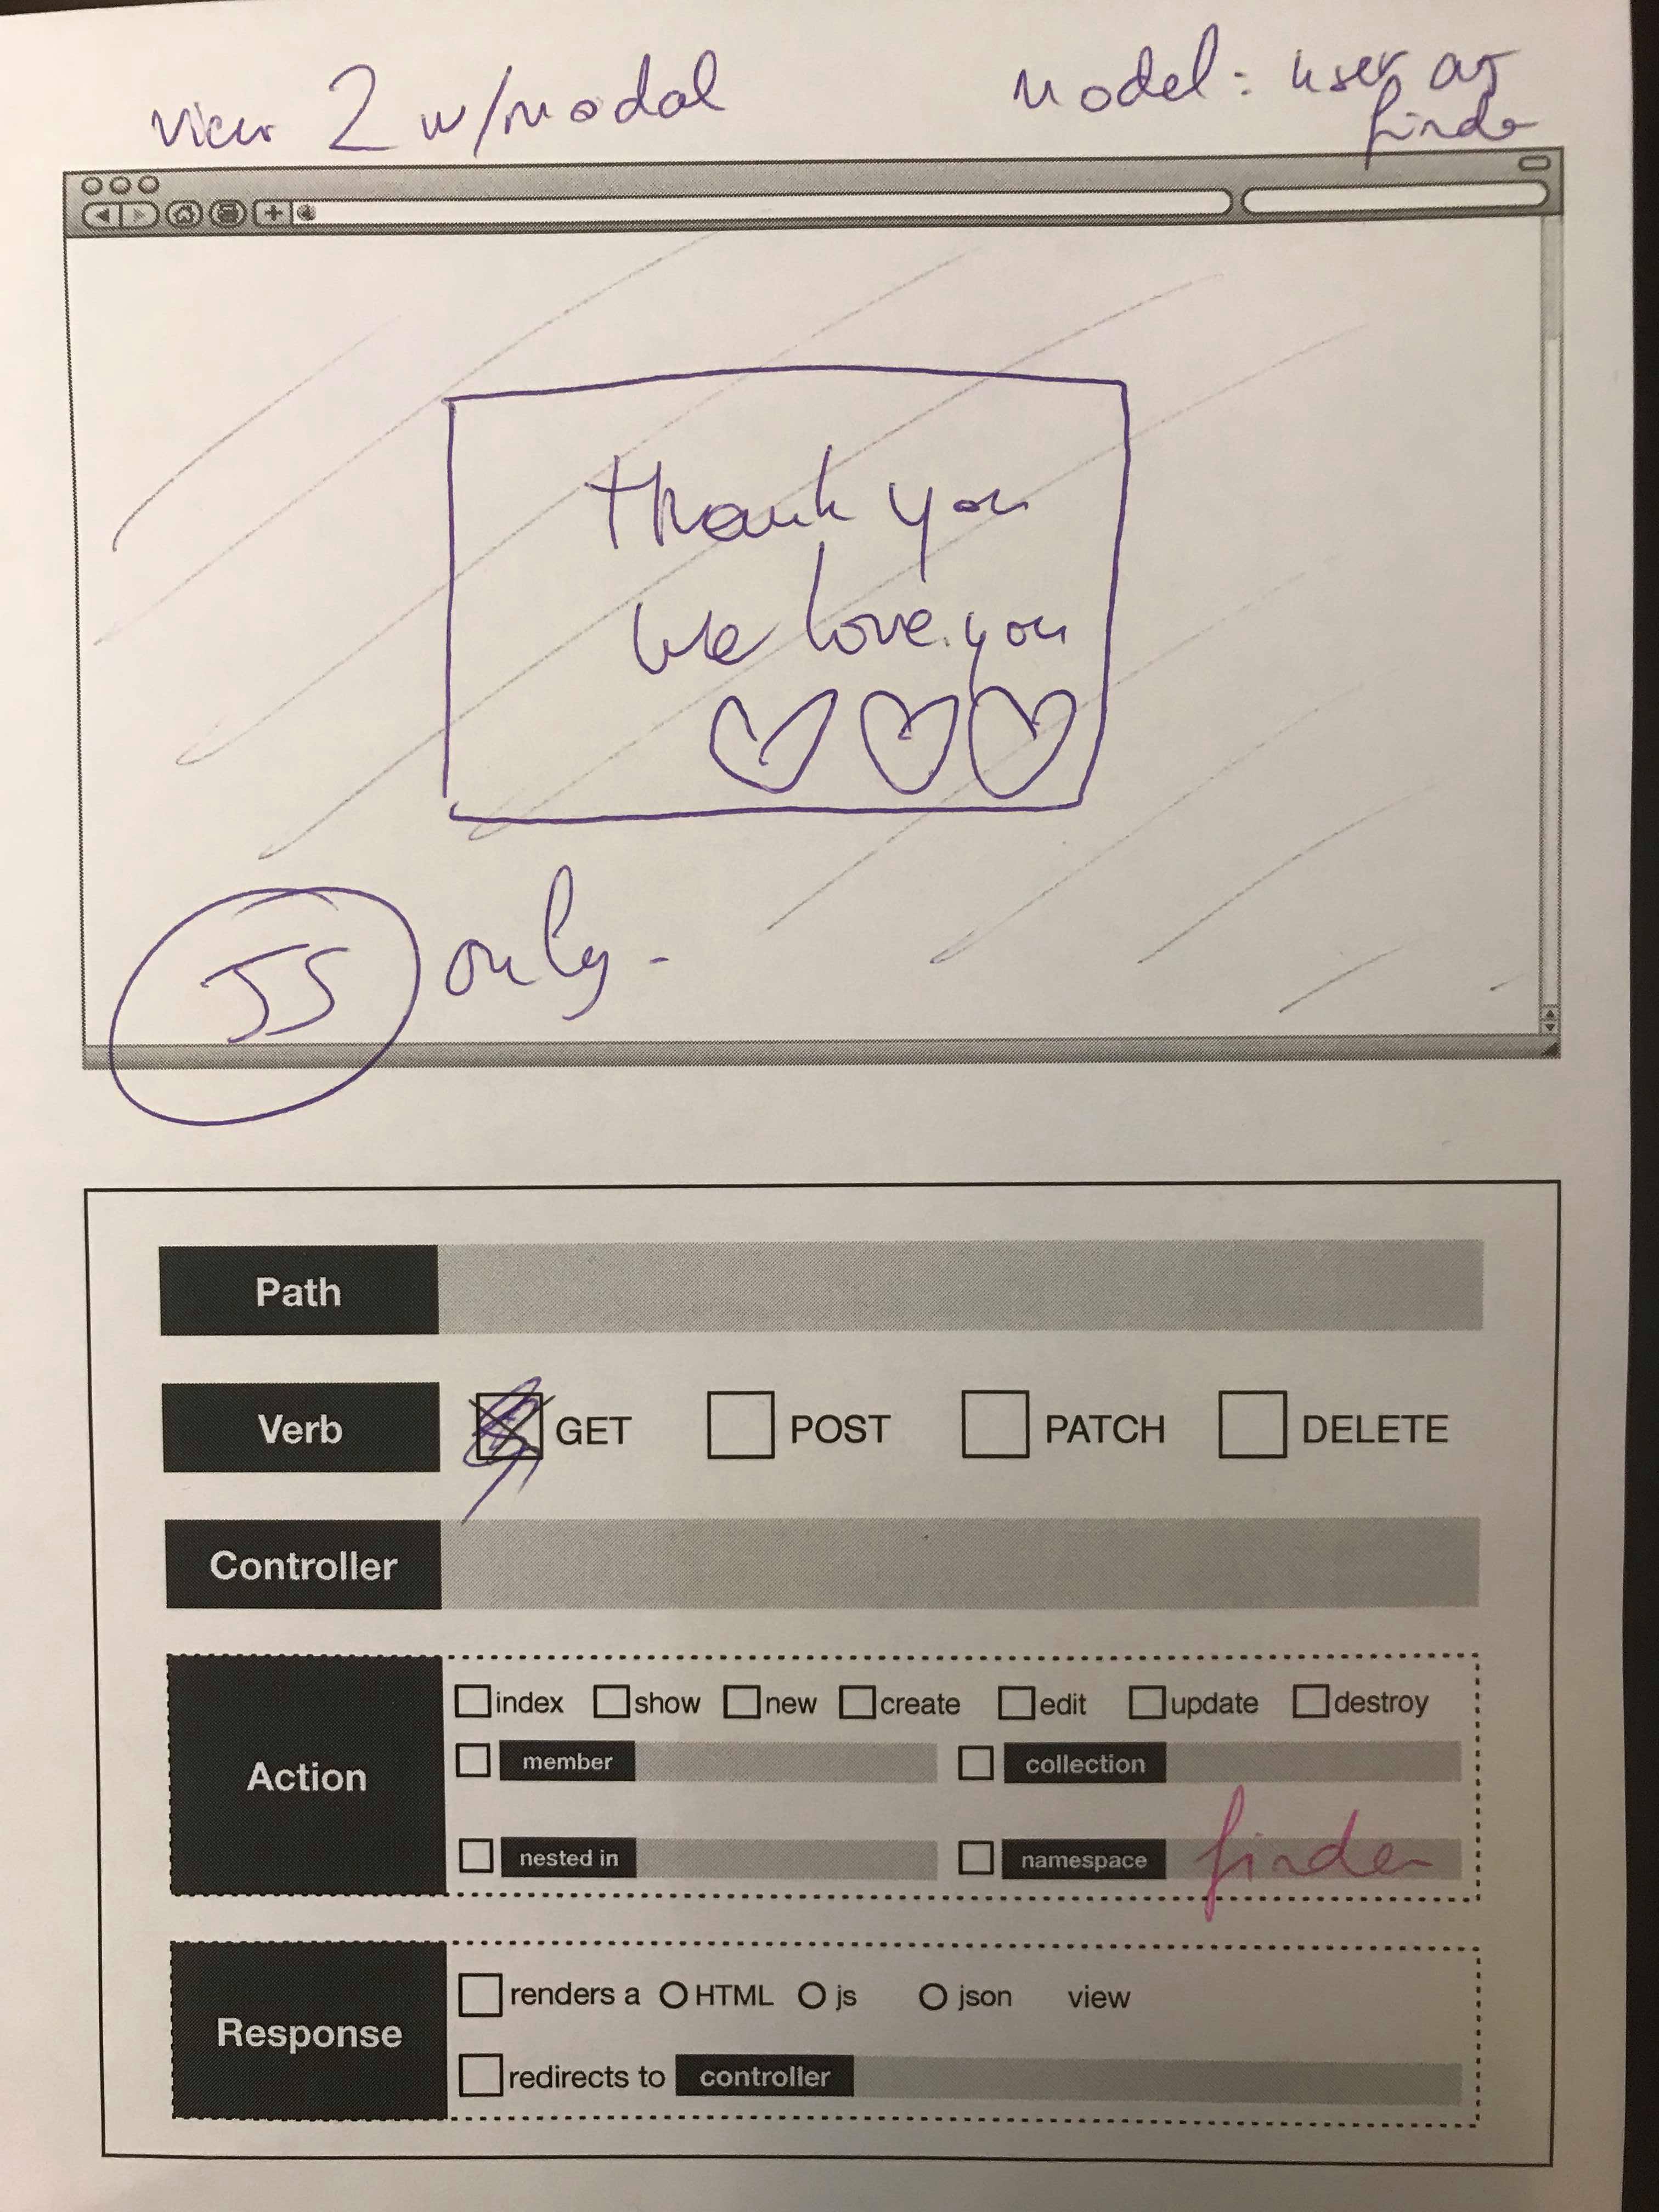 view 2 w/modal
model: user as
finder
Thank you
we love you
JS only.
Path
Verb GET POST PATCH DELETE
Controller
Action
index show new create edit update destroy
member collection
nested in namespace finder
Response
renders a HTML js json view
redirects to controller